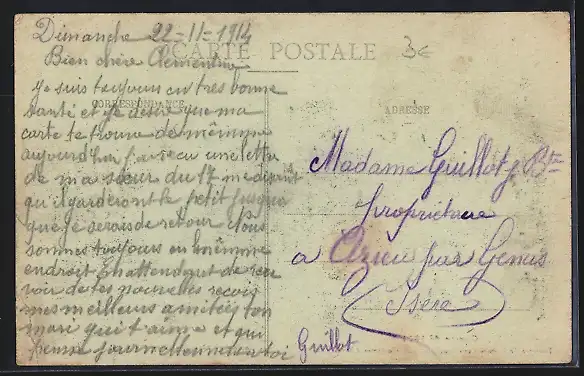 Dimanche 22-11-1914
Bien chère Clementine
CARTE POSTALE
3€
CORRESPONDANCE
ADRESSE
je suis toujours en tres bonne
santé et je desire que ma
carte te trouve de mêmme
aujourd'hui j'ai recu une lettre
de ma sœur du 17 me disant
qu'il garderont le petit jusqua
que je serais de retour Nous
sommes toujours en mêmme
endroit En attendant de rece
voir de tes nouvelles recois
mes meilleurs amitiés ton
mari qui t'aime et qui
pense journellement a toi
Guillot
Madame Guillot J Bte
propriétaire
a Azieu par Genas
Isère